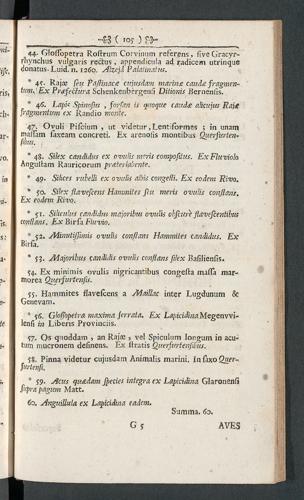 ( 105 )
44. Glossopetra Rostrum Corvinum referens, sive Gracyr-
rhynchus vulgaris rectus, appendicula ad radicem utrinque
donatus. Luid. n. 1260. Alzejâ Palatinatus.
* 45. Rajæ seu Pastinacæ cujusdam marinæ caudæ fragmen-
tum. Ex Præfectura Schenkenbergensi Ditionis Bernensis.
* 46. Lapis Spinosus, forsan is quoque caudæ alicujus Rajæ
fragmentum ex Randio monte.
47. Ovuli Piscium, ut videtur, Lentiformes; in unam
massam saxeam concreti. Ex arenosis montibus Querfurten-
sibus.
* 48. Silex candidus ex ovulis meris compositus. Ex Fluviolo
Angustam Rauricorum præterlabente.
* 49. Silices rubelli ex ovulis albis congesti. Ex eodem Rivo.
* 50. Silex flavescens Hammites seu meris ovulis constans.
Ex eodem Rivo.
* 51. Siliculus candidus majoribus ovulis obscurè flavescentibus
constans. Ex Birsa Fluvio.
* 52. Minutissimis ovulis constans Hammites candidus. Ex
Birsa.
* 53. Majoribus candidis ovulis constans silex Basiliensis.
54. Ex minimis ovulis nigricantibus congesta massa mar-
morea Querfurtensis.
55. Hammites flavescens a Maillac inter Lugdunum &
Genevam.
* 56. Glossopetra maxima serrata. Ex Lapicidina Megenvvi-
lensi in Liberis Provinciis.
57. Os quoddam, an Rajæ, vel Spiculum longum in acu-
tum mucronem desinens. Ex stratis Querfurtensibus.
58. Pinna videtur cujusdam Animalis marini. In saxo Quer-
furtensi.
* 59. Acus quædam species integra ex Lapicidina Glaronensi
supra pagum Matt.
60. Anguillula ex Lapicidina eadem.
Summa. 60.
G 5 AVES